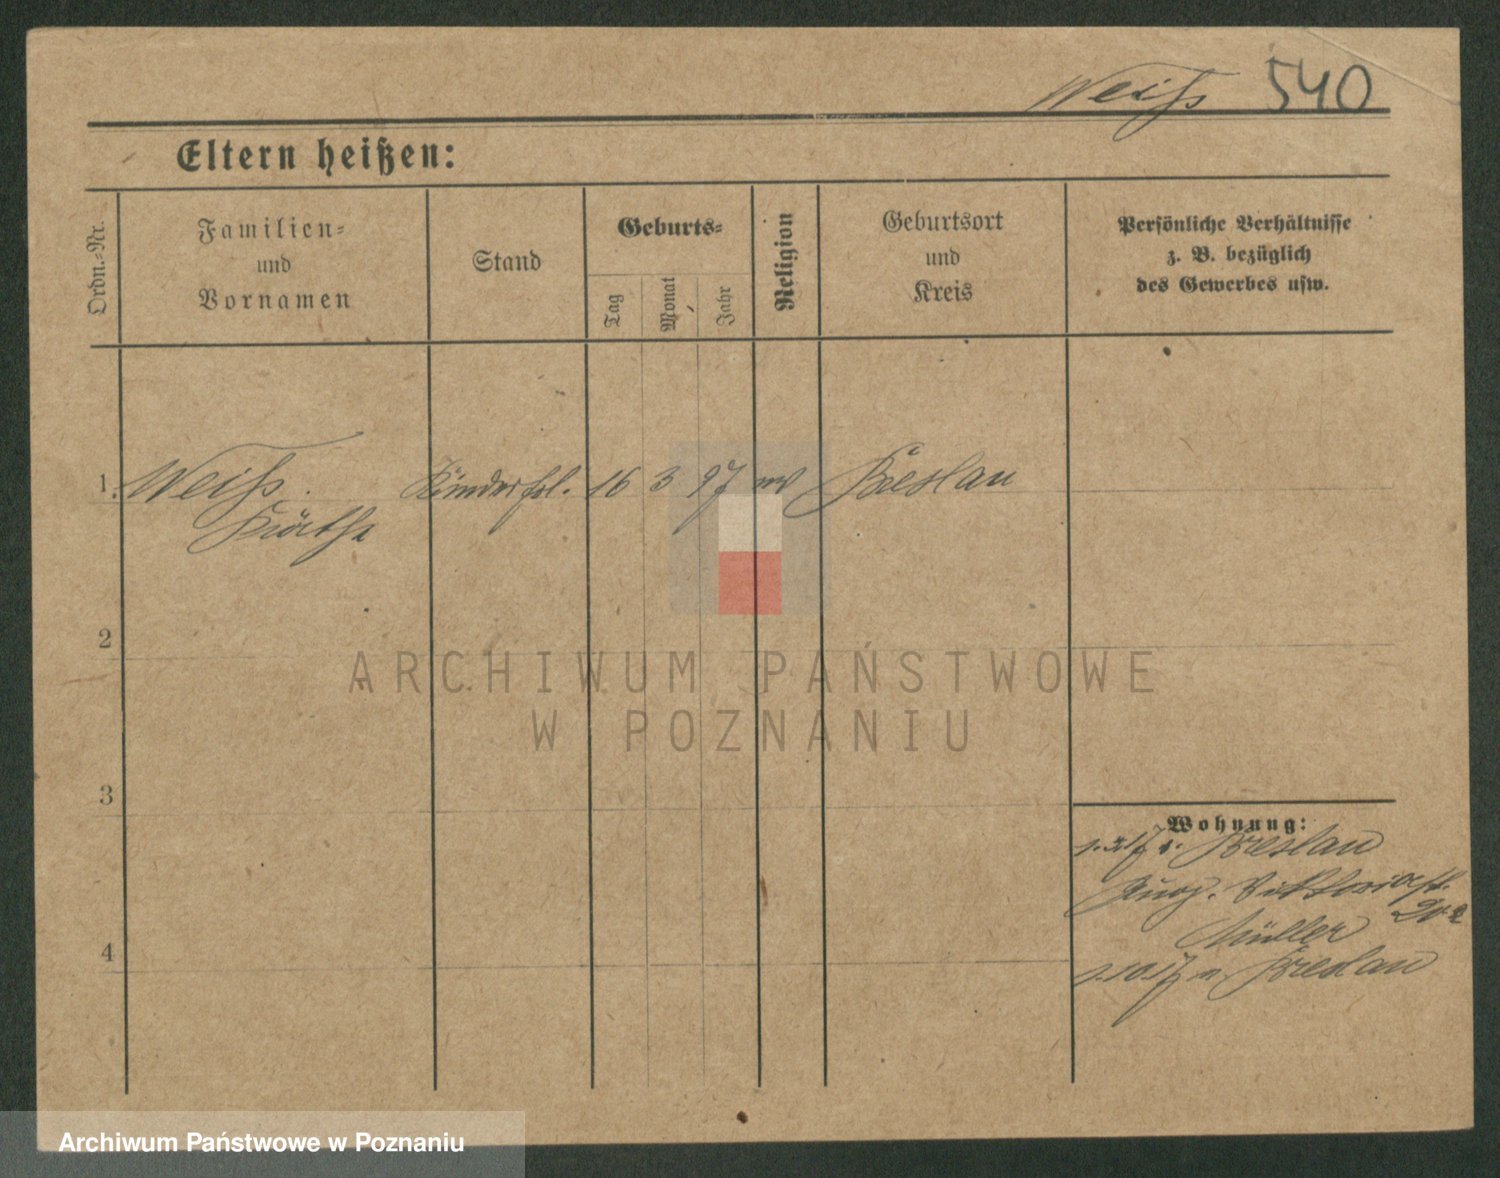 Weiß 540
Eltern heißen:
Ordn.-Nr.
Familien-
und
Vornamen
Stand
Geburts-
Tag
Monat
Jahr
Religion
Geburtsort
und
Kreis
Persönliche Verhältnisse
z. B. bezüglich
des Gewerbes usw.
1. Weiß Kinderfrl. 16 3 97 Breslau
Käthe
2
3
4
Wohnung:
Breslau
Viktoriastr.
Müller
1.10.17 n. Breslau
ARCHIWUM PAŃSTWOWE
W POZNANIU
Archiwum Państwowe w Poznaniu